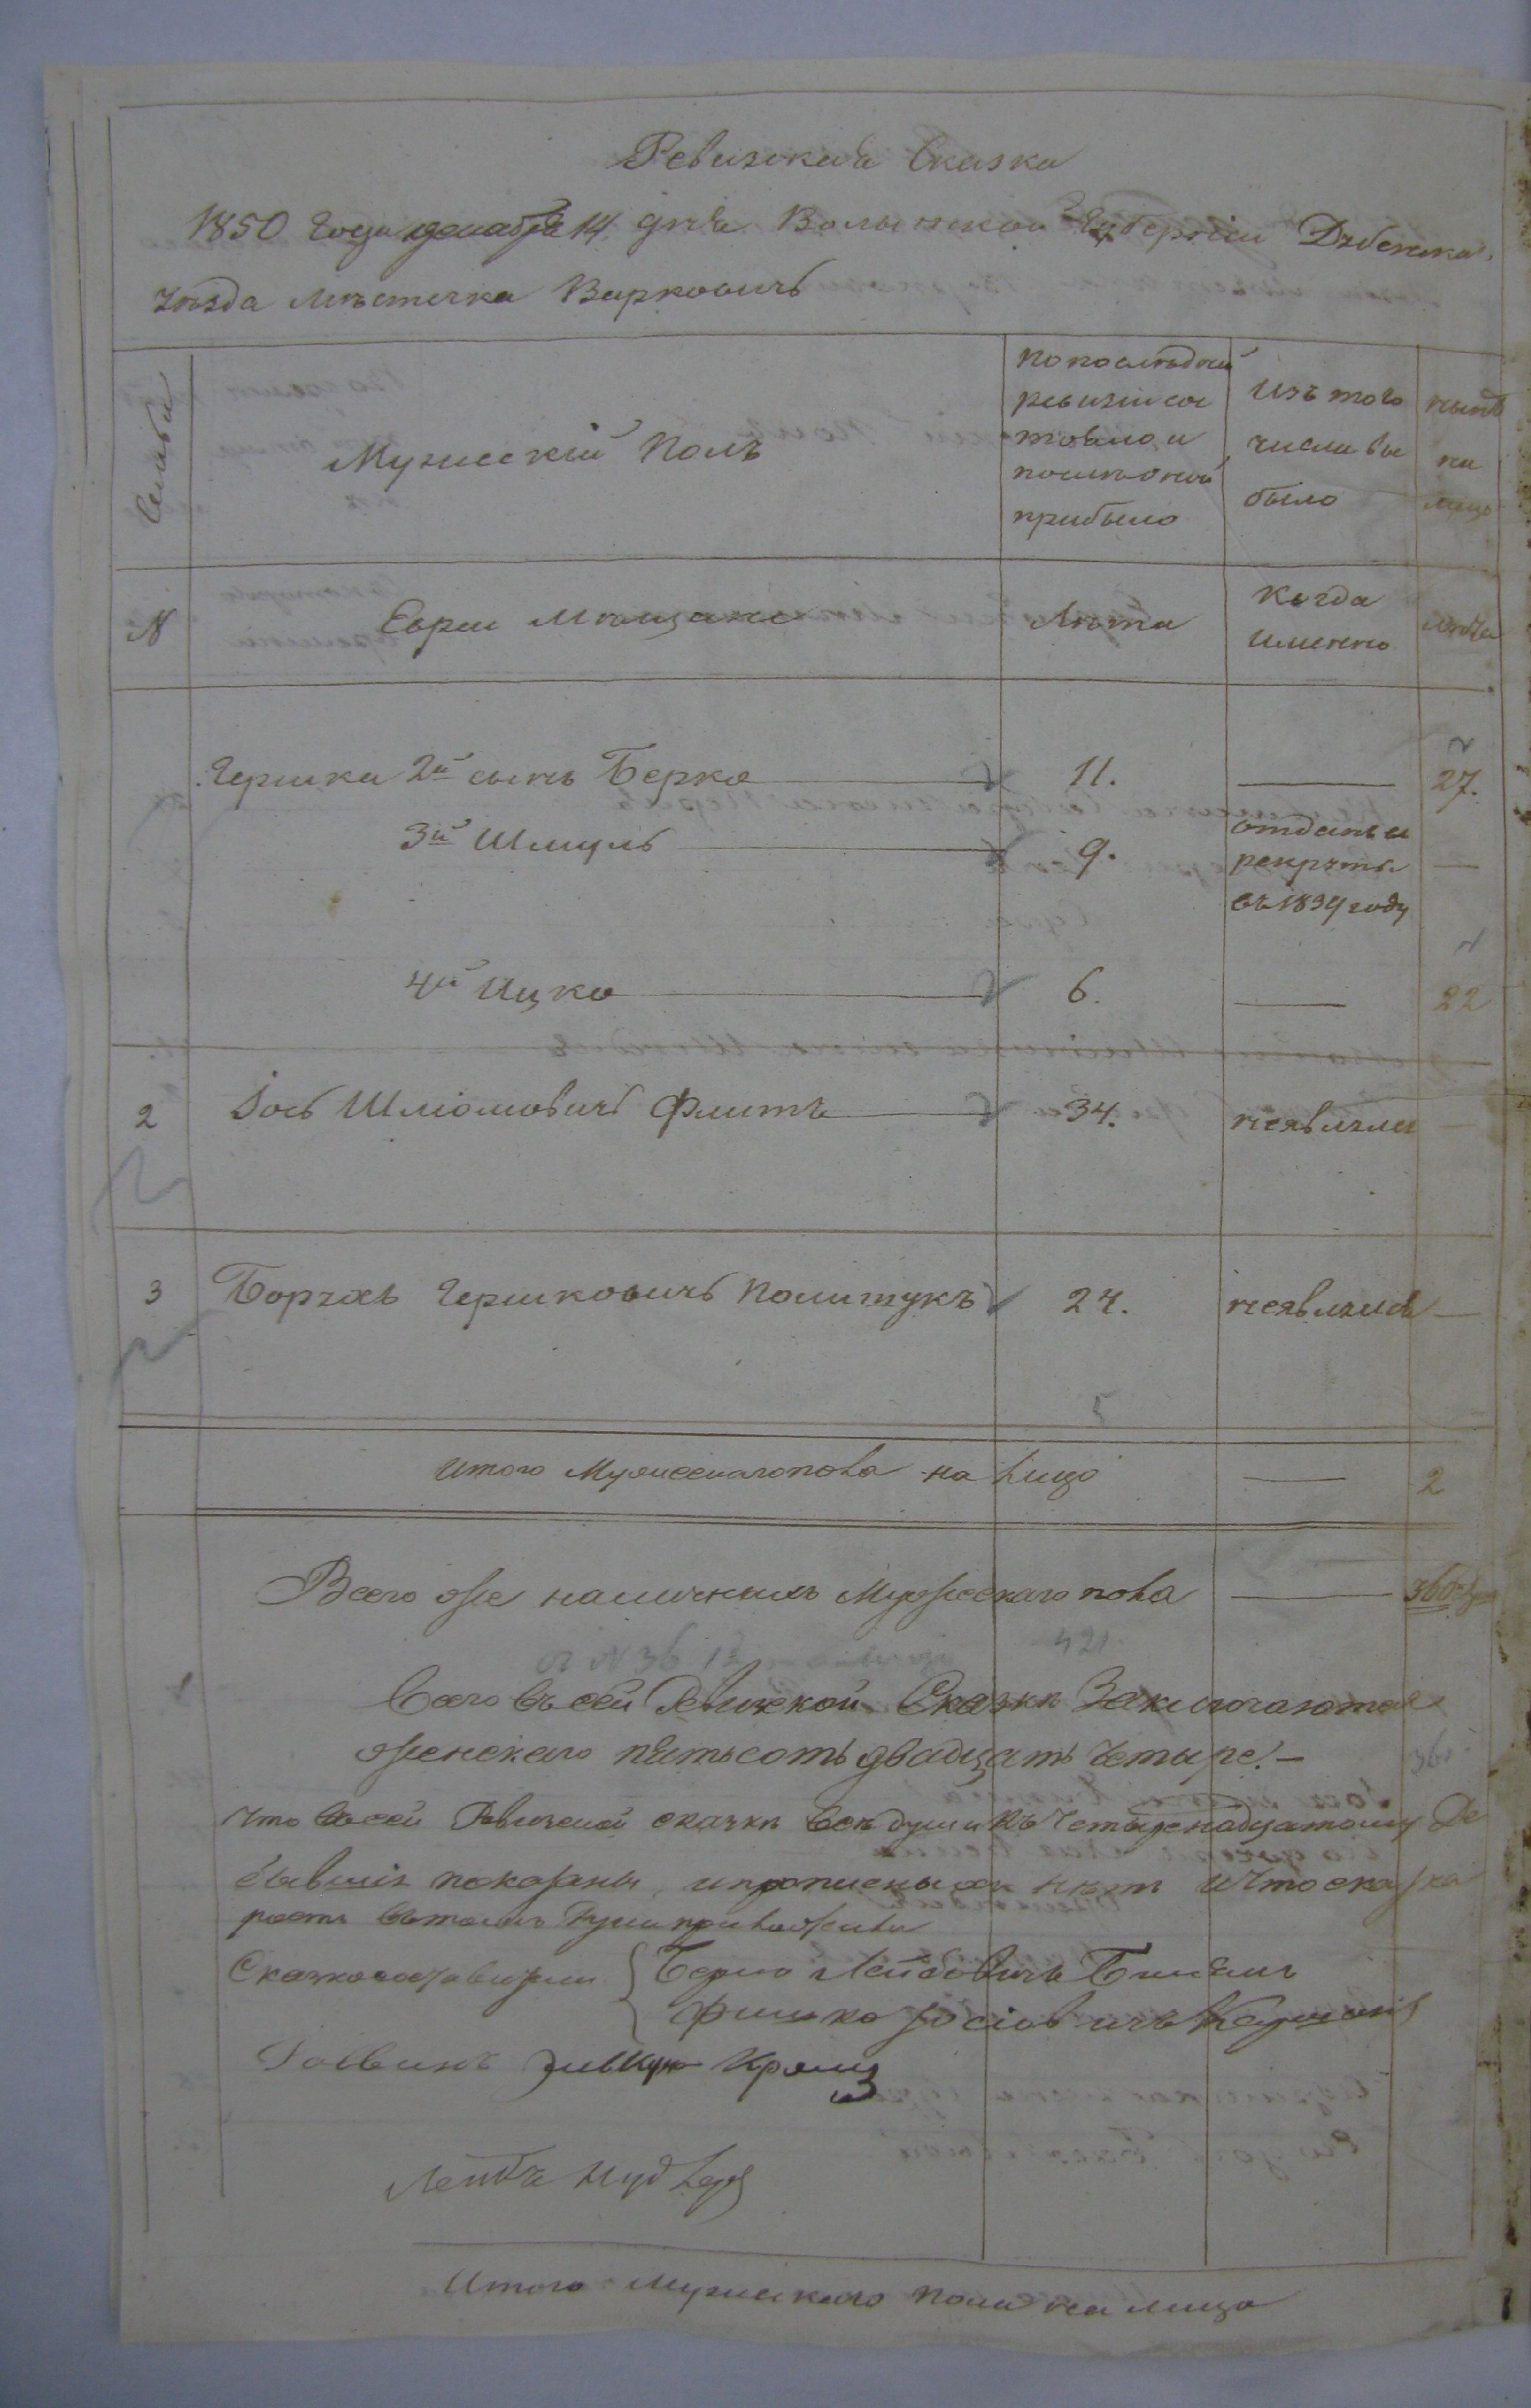 Ревизская Сказка
1850 Года декабря 14 дня Волынской Губерніи Дубенска
уѣзда мѣстечка Варковичь
Семьи
Мужескій Полъ
по послѣдней
ревизіи сос
тояло и
послѣ оной
прибыло
Изъ того
числа вы
было
нынѣ
на
лицо
N
Евреи Мѣщане
Лѣта
Когда
именно
лѣта
Гершка 2й сынъ Берко 11. — 27.
3й Шмуль 9. отданъ в
рекруты —
въ 1834 году
4й Ицко 6. — 22
2 Іось Шліомовичь Флитъ 34. неявился —
3 Борухъ Гершковичь Полищукъ 24. неявился —
5
Итого Мужескаго пола на лицо — 2
Всего же наличныхъ Мужескаго пола — 360
421
Всего въ сей Ревизской Сказки Заключаются
женскаго пятьсотъ двадцать четыре. —
360
Что въ сей Ревизской сказки всѣ души къ Четырнадцатому Де
бывшія показаны, и прописныхъ нѣтъ и что сказка
Сказкосоставители { Берко Лейбовичь
Фишко Іосіовичь
Раввинъ
Лейба
Итого Мужескаго пола на лицо